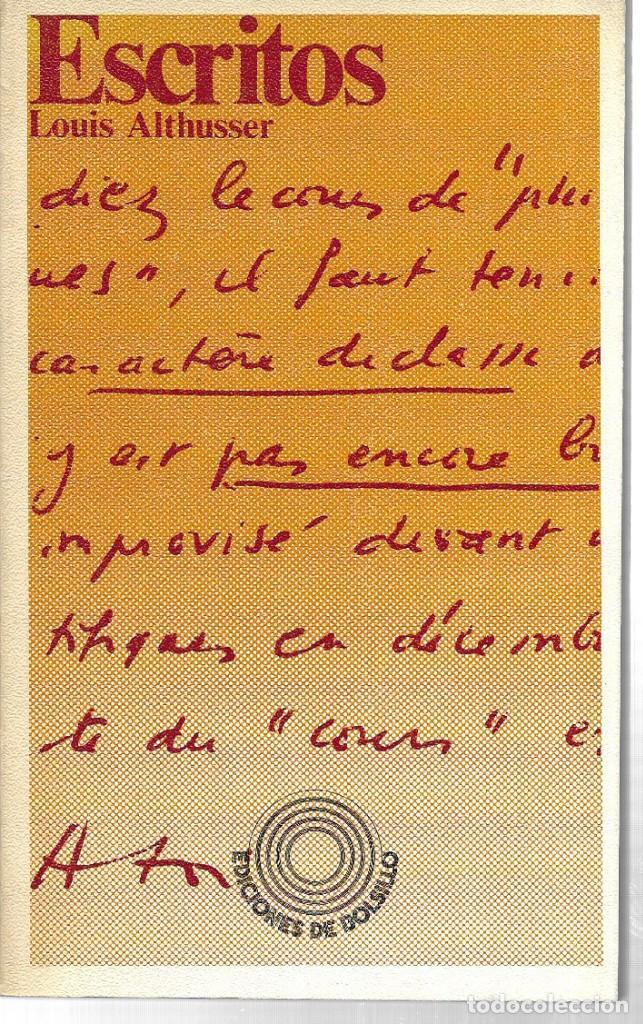 Escritos
Louis Althusser
diez le cours de "phi
ues", il faut teni
caractère de classe d
y est pas encore
improvisé devant
tifiques en décemb
te du "cours" e
EDICIONES DE BOLSILLO
todocoleccion